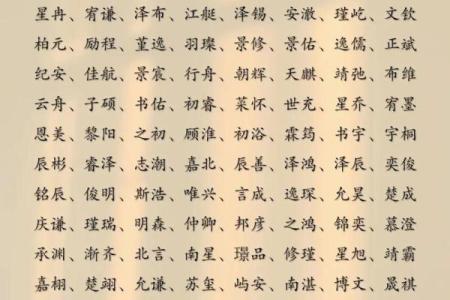 星冉、宥谦、泽布、江艇、泽锡、安澈、瑾屹、文钦
柏元、励程、堇逸、羽璨、景修、景佑、逸儒、正斌
纪安、佳航、景宸、行舟、朝辉、天麒、靖弛、布维
云舟、子硕、书佑、初睿、莱怀、世充、星乔、宥墨
恩美、黎阳、之初、顾淮、初浴、霖筠、书宇、宇桐
辰彬、睿泽、志潮、嘉北、辰善、泽鸿、泽辰、奕俊
铭辰、俊明、斯浩、唯兴、言成、逸琛、允昊、楚成
庆谦、瑾瑞、明森、仲卿、邦彦、之鸿、锦奕、慕澄
承渊、渐齐、北言、南星、璟品、修瑾、星旭、靖霸
嘉栩、楚翊、允谦、苏玺、屿安、南湛、博文、晟祺